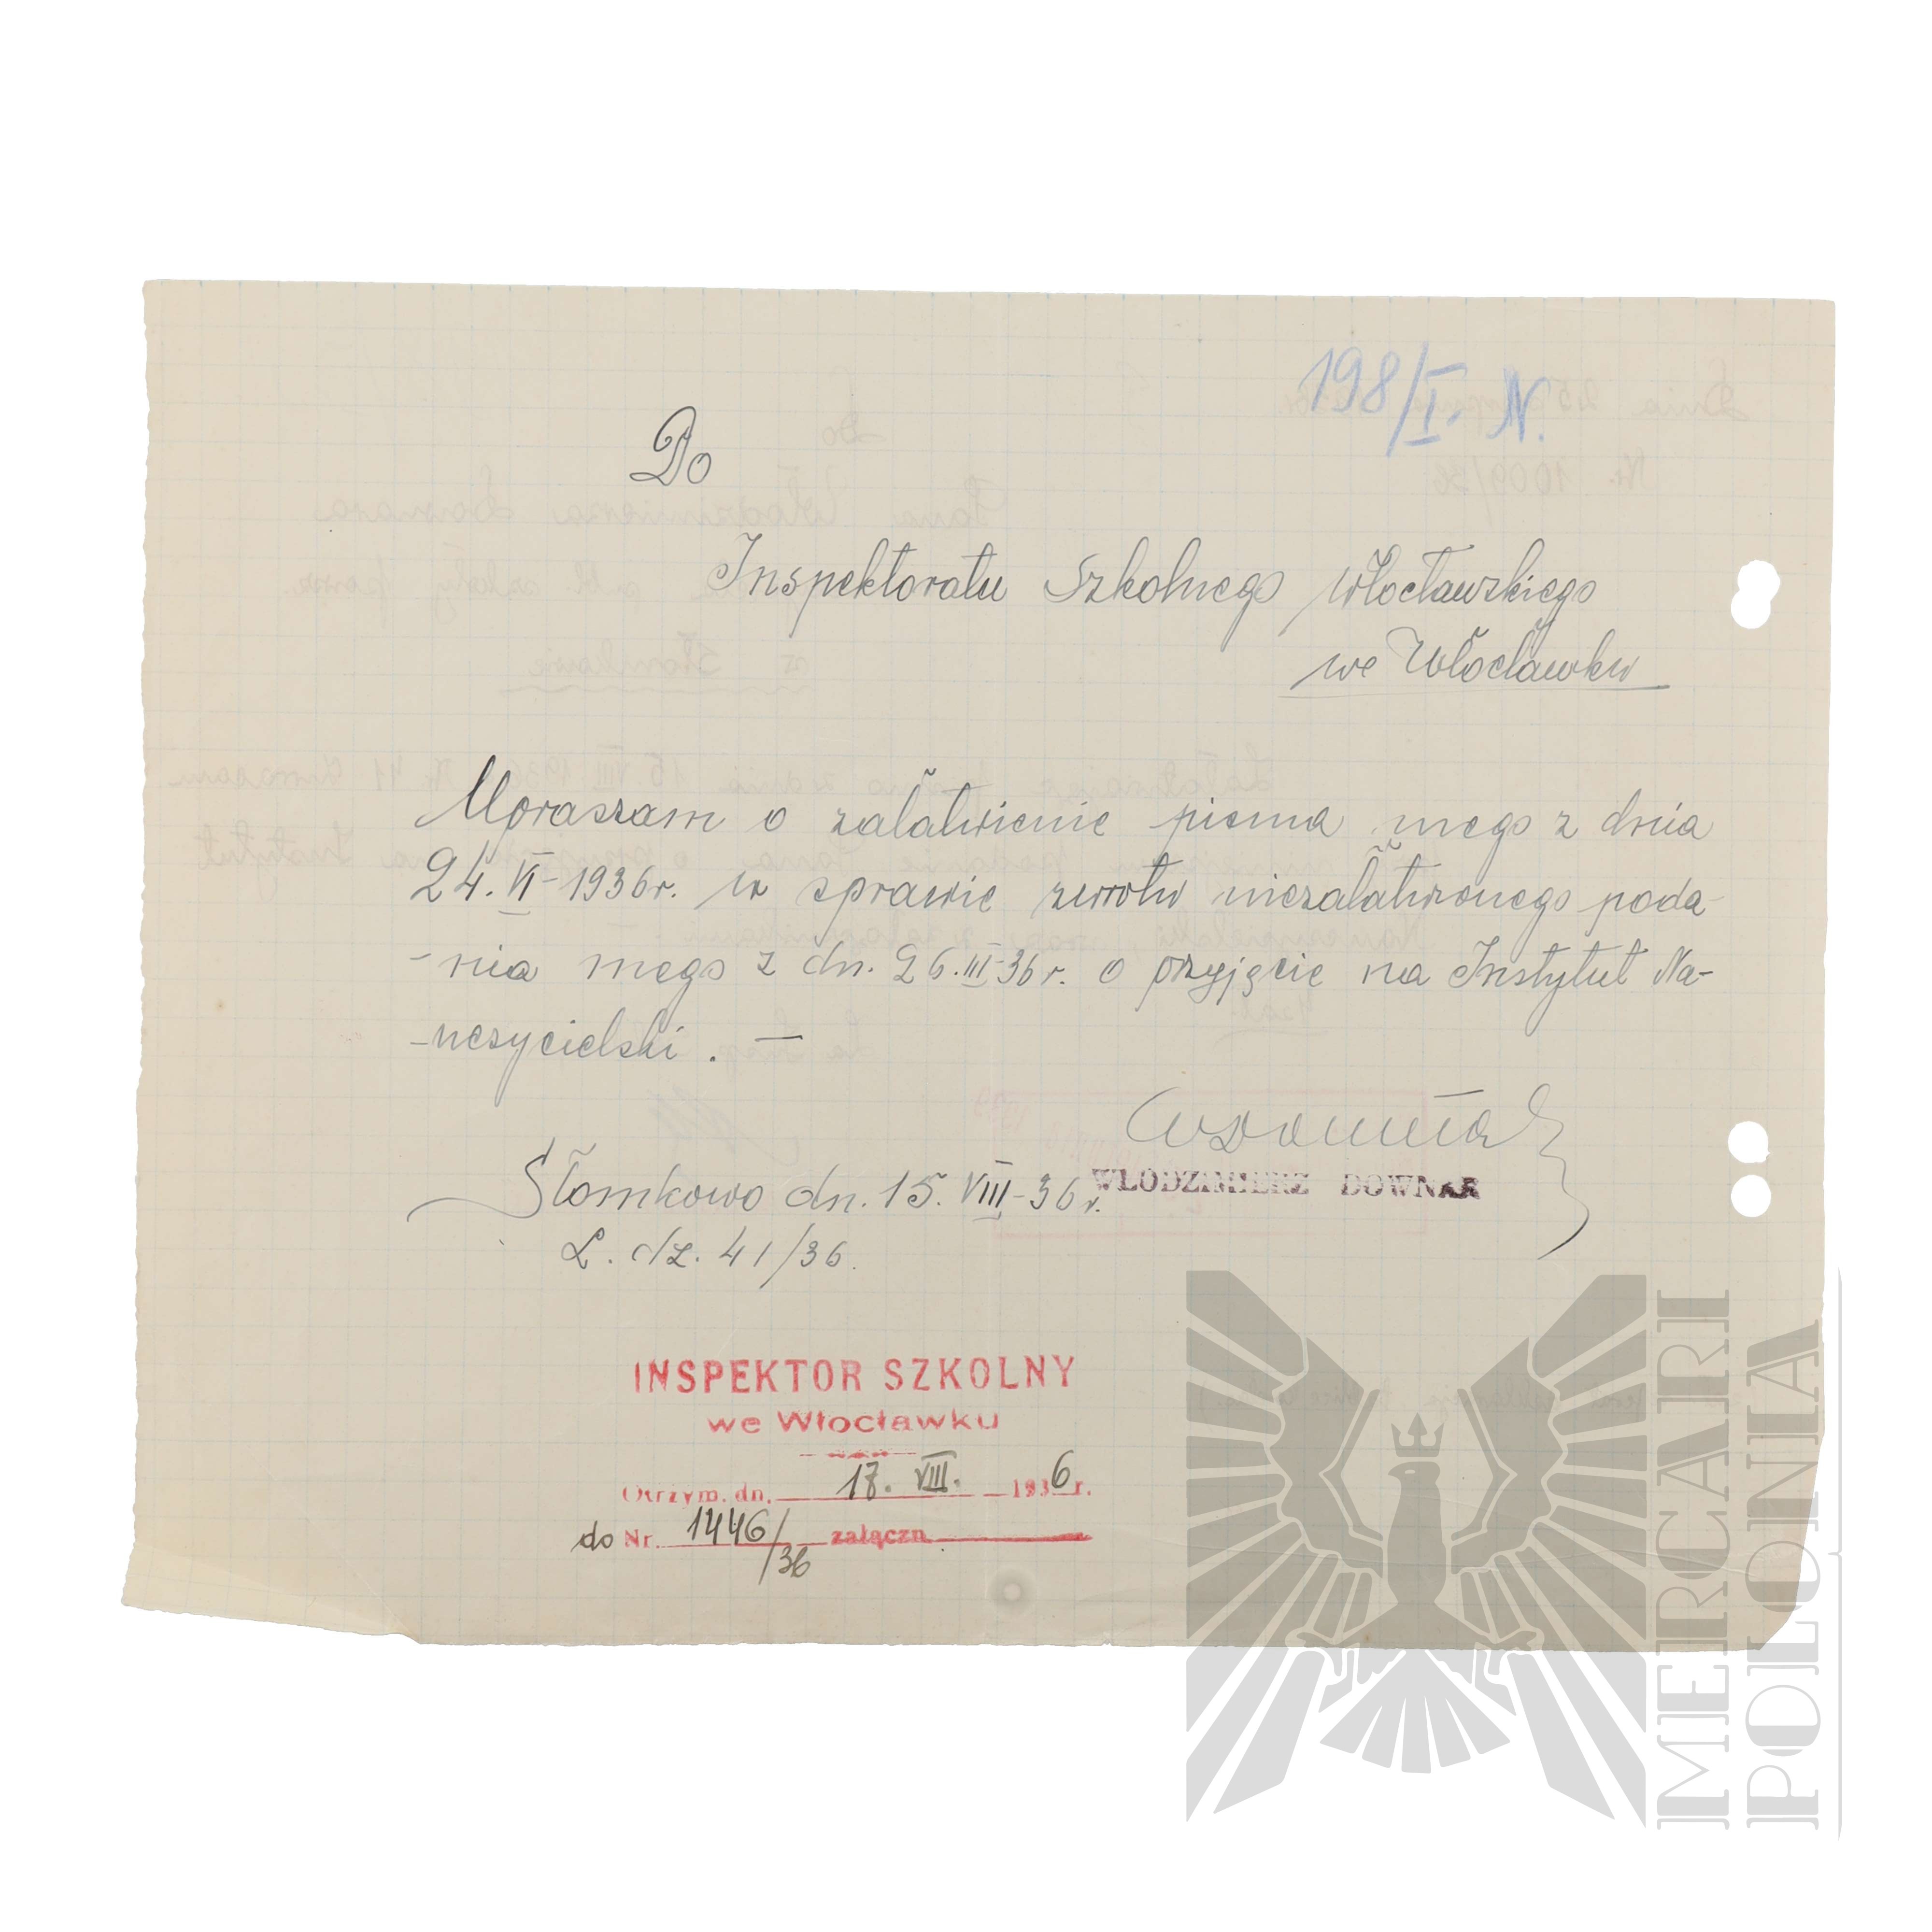 198/I. N.
Do
Inspektoratu Szkolnego Włocławskiego
we Włocławku
Upraszam o załatwienie pisma mego z dnia
24. VI-1936 r. w sprawie zwrotu niezałatwionego poda-
-nia mego z dn. 26. III-36 r. o przyjęcie na Instytut Na-
-uczycielski. —
WŁODZIMIERZ DOWNAR
Słomkowo dn. 15. VIII-36 r.
L. dz. 41/36.
INSPEKTOR SZKOLNY
we Włocławku
Otrzym. dn. 17. VIII. 1936 r.
do Nr. 1446/36 załączn.
MERCARI
POLONIA